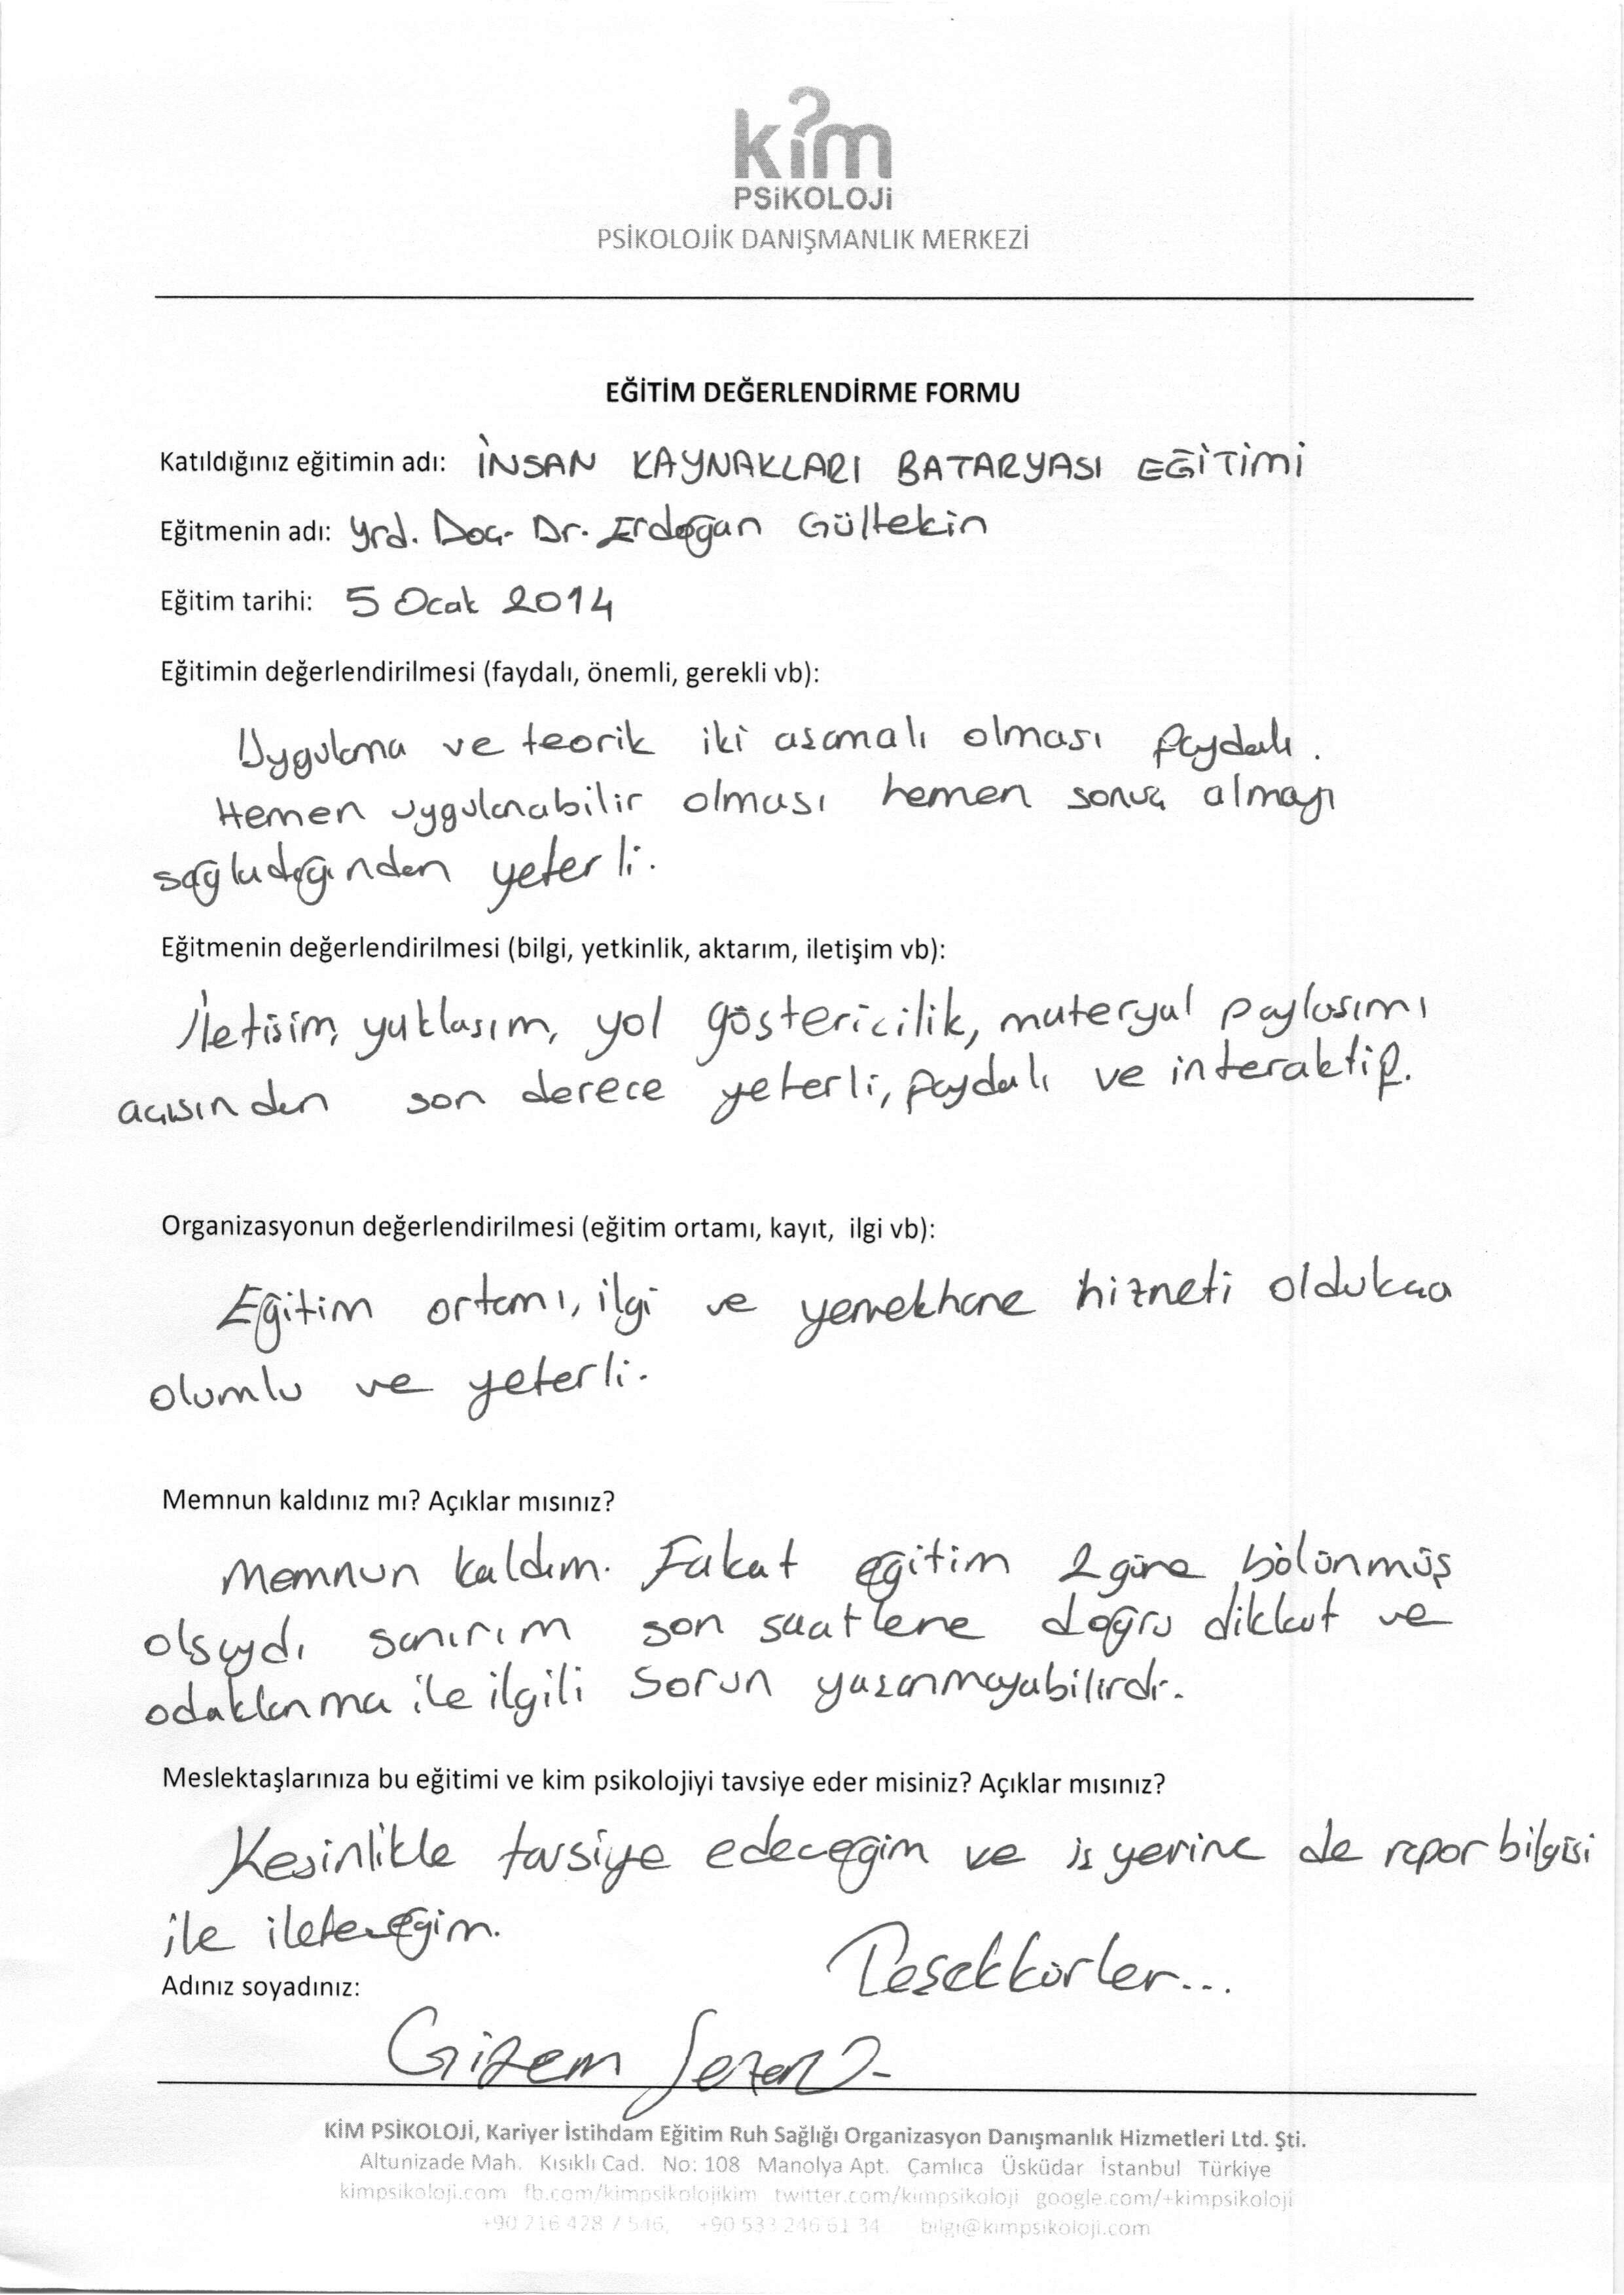 kim
PSiKOLOJi
PSİKOLOJİK DANIŞMANLIK MERKEZİ
EĞİTİM DEĞERLENDİRME FORMU
Katıldığınız eğitimin adı: İNSAN KAYNAKLARI BATARYASI EĞİTİMİ
Eğitmenin adı: Yrd. Doç. Dr. Erdoğan Gültekin
Eğitim tarihi: 5 Ocak 2014
Eğitimin değerlendirilmesi (faydalı, önemli, gerekli vb):
Uygulama ve teorik iki aşamalı olması faydalı.
Hemen uygulanabilir olması hemen sonuç almayı
sağladığından yeterli.
Eğitmenin değerlendirilmesi (bilgi, yetkinlik, aktarım, iletişim vb):
İletişim, yaklaşım, yol göstericilik, materyal paylaşımı
açısından son derece yeterli, faydalı ve interaktif.
Organizasyonun değerlendirilmesi (eğitim ortamı, kayıt, ilgi vb):
Eğitim ortamı, ilgi ve yemekhane hizmeti oldukça
olumlu ve yeterli.
Memnun kaldınız mı? Açıklar mısınız?
Memnun kaldım. Fakat eğitim 2 güne bölünmüş
olsaydı sanırım son saatlere doğru dikkat ve
odaklanma ile ilgili sorun yaşanmayabilirdi.
Meslektaşlarınıza bu eğitimi ve kim psikolojiyi tavsiye eder misiniz? Açıklar mısınız?
Kesinlikle tavsiye edeceğim ve iş yerine de rapor bilgisi
ile ileteceğim.
Teşekkürler...
Adınız soyadınız:
Gizem Sezen
KİM PSİKOLOJİ, Kariyer İstihdam Eğitim Ruh Sağlığı Organizasyon Danışmanlık Hizmetleri Ltd. Şti.
Altunizade Mah. Kısıklı Cad. No: 108 Manolya Apt. Çamlıca Üsküdar İstanbul Türkiye
kimpsikoloji.com fb.com/kimpsikolojikim twitter.com/kimpsikoloji google.com/+kimpsikoloji
+90 216 428 7 546, +90 533 246 61 34 bilgi@kimpsikoloji.com